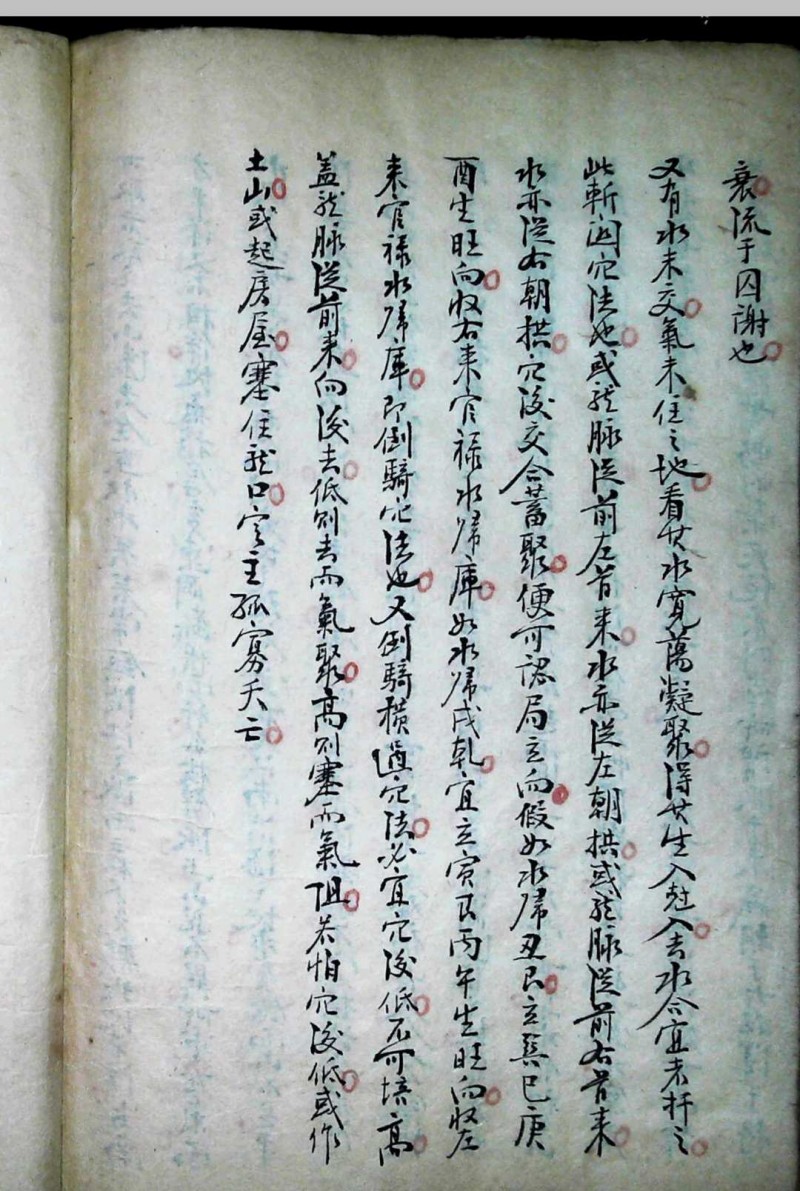 衰流于囚謝也
又有水未交氣未住之地看其水寬蕩凝聚得其生入尅入去水合宜者扦之
此斬関穴法也或龍脉從前左首来水亦從左朝拱或龍脉從前右首来
水亦從右朝拱穴後交合蓄聚便可認局立向假如水帰丑艮立巽巳庚
酉生旺向收右来官禄水帰庫如水帰戌乾宜立寅艮丙午生旺向收左
来官禄水帰庫即倒騎穴法也又倒騎横過穴法必宜穴後低不可培高
盖龍脉從前来向後去低則去而氣聚高則塞而氣阻若怕穴後低或作
土山或起房屋塞住龍口定主孤寡夭亡